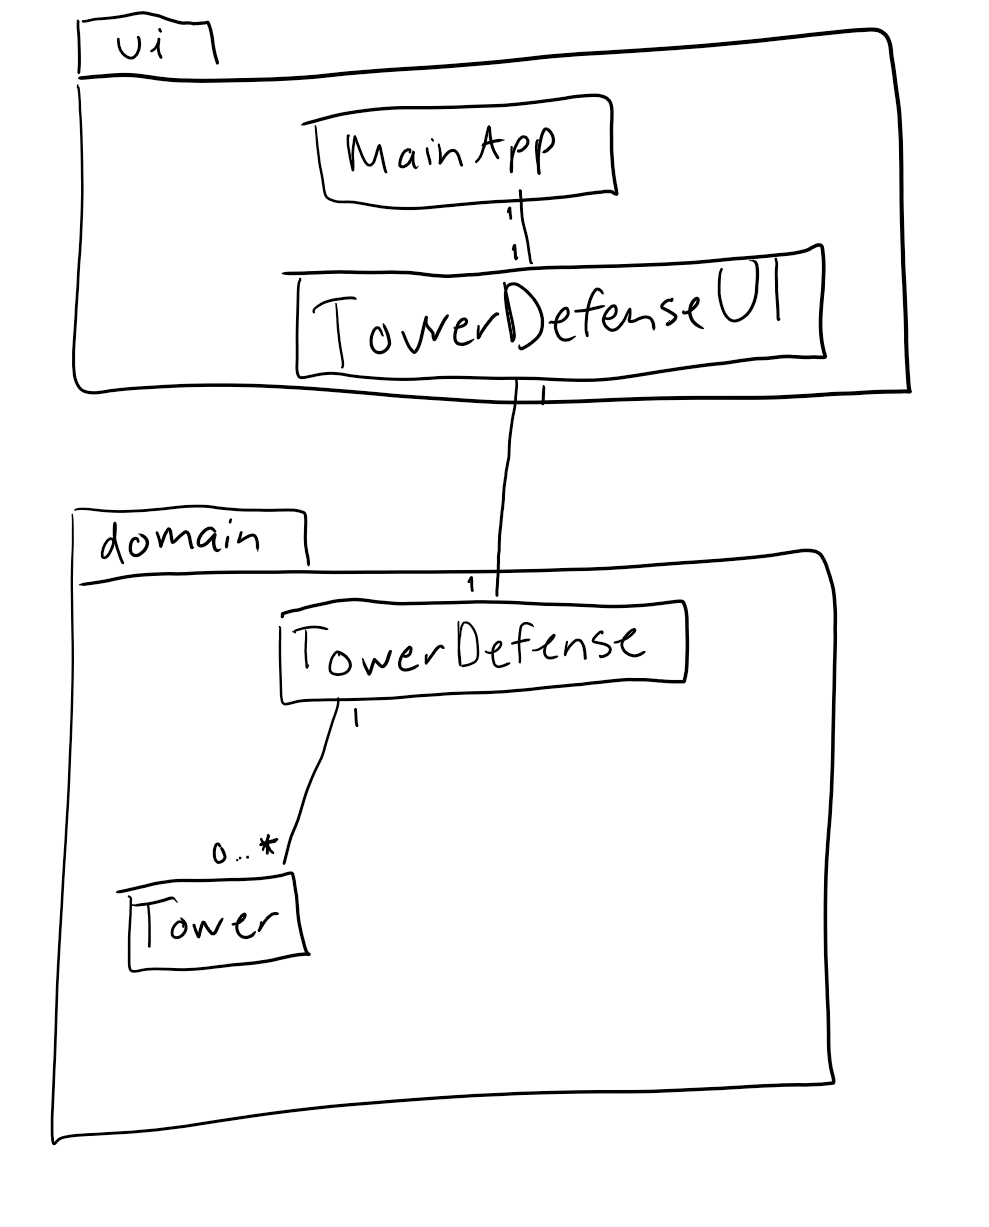 ui
MainApp
1
1
TowerDefenseUI
1
domain
1
TowerDefense
1
0...*
Tower